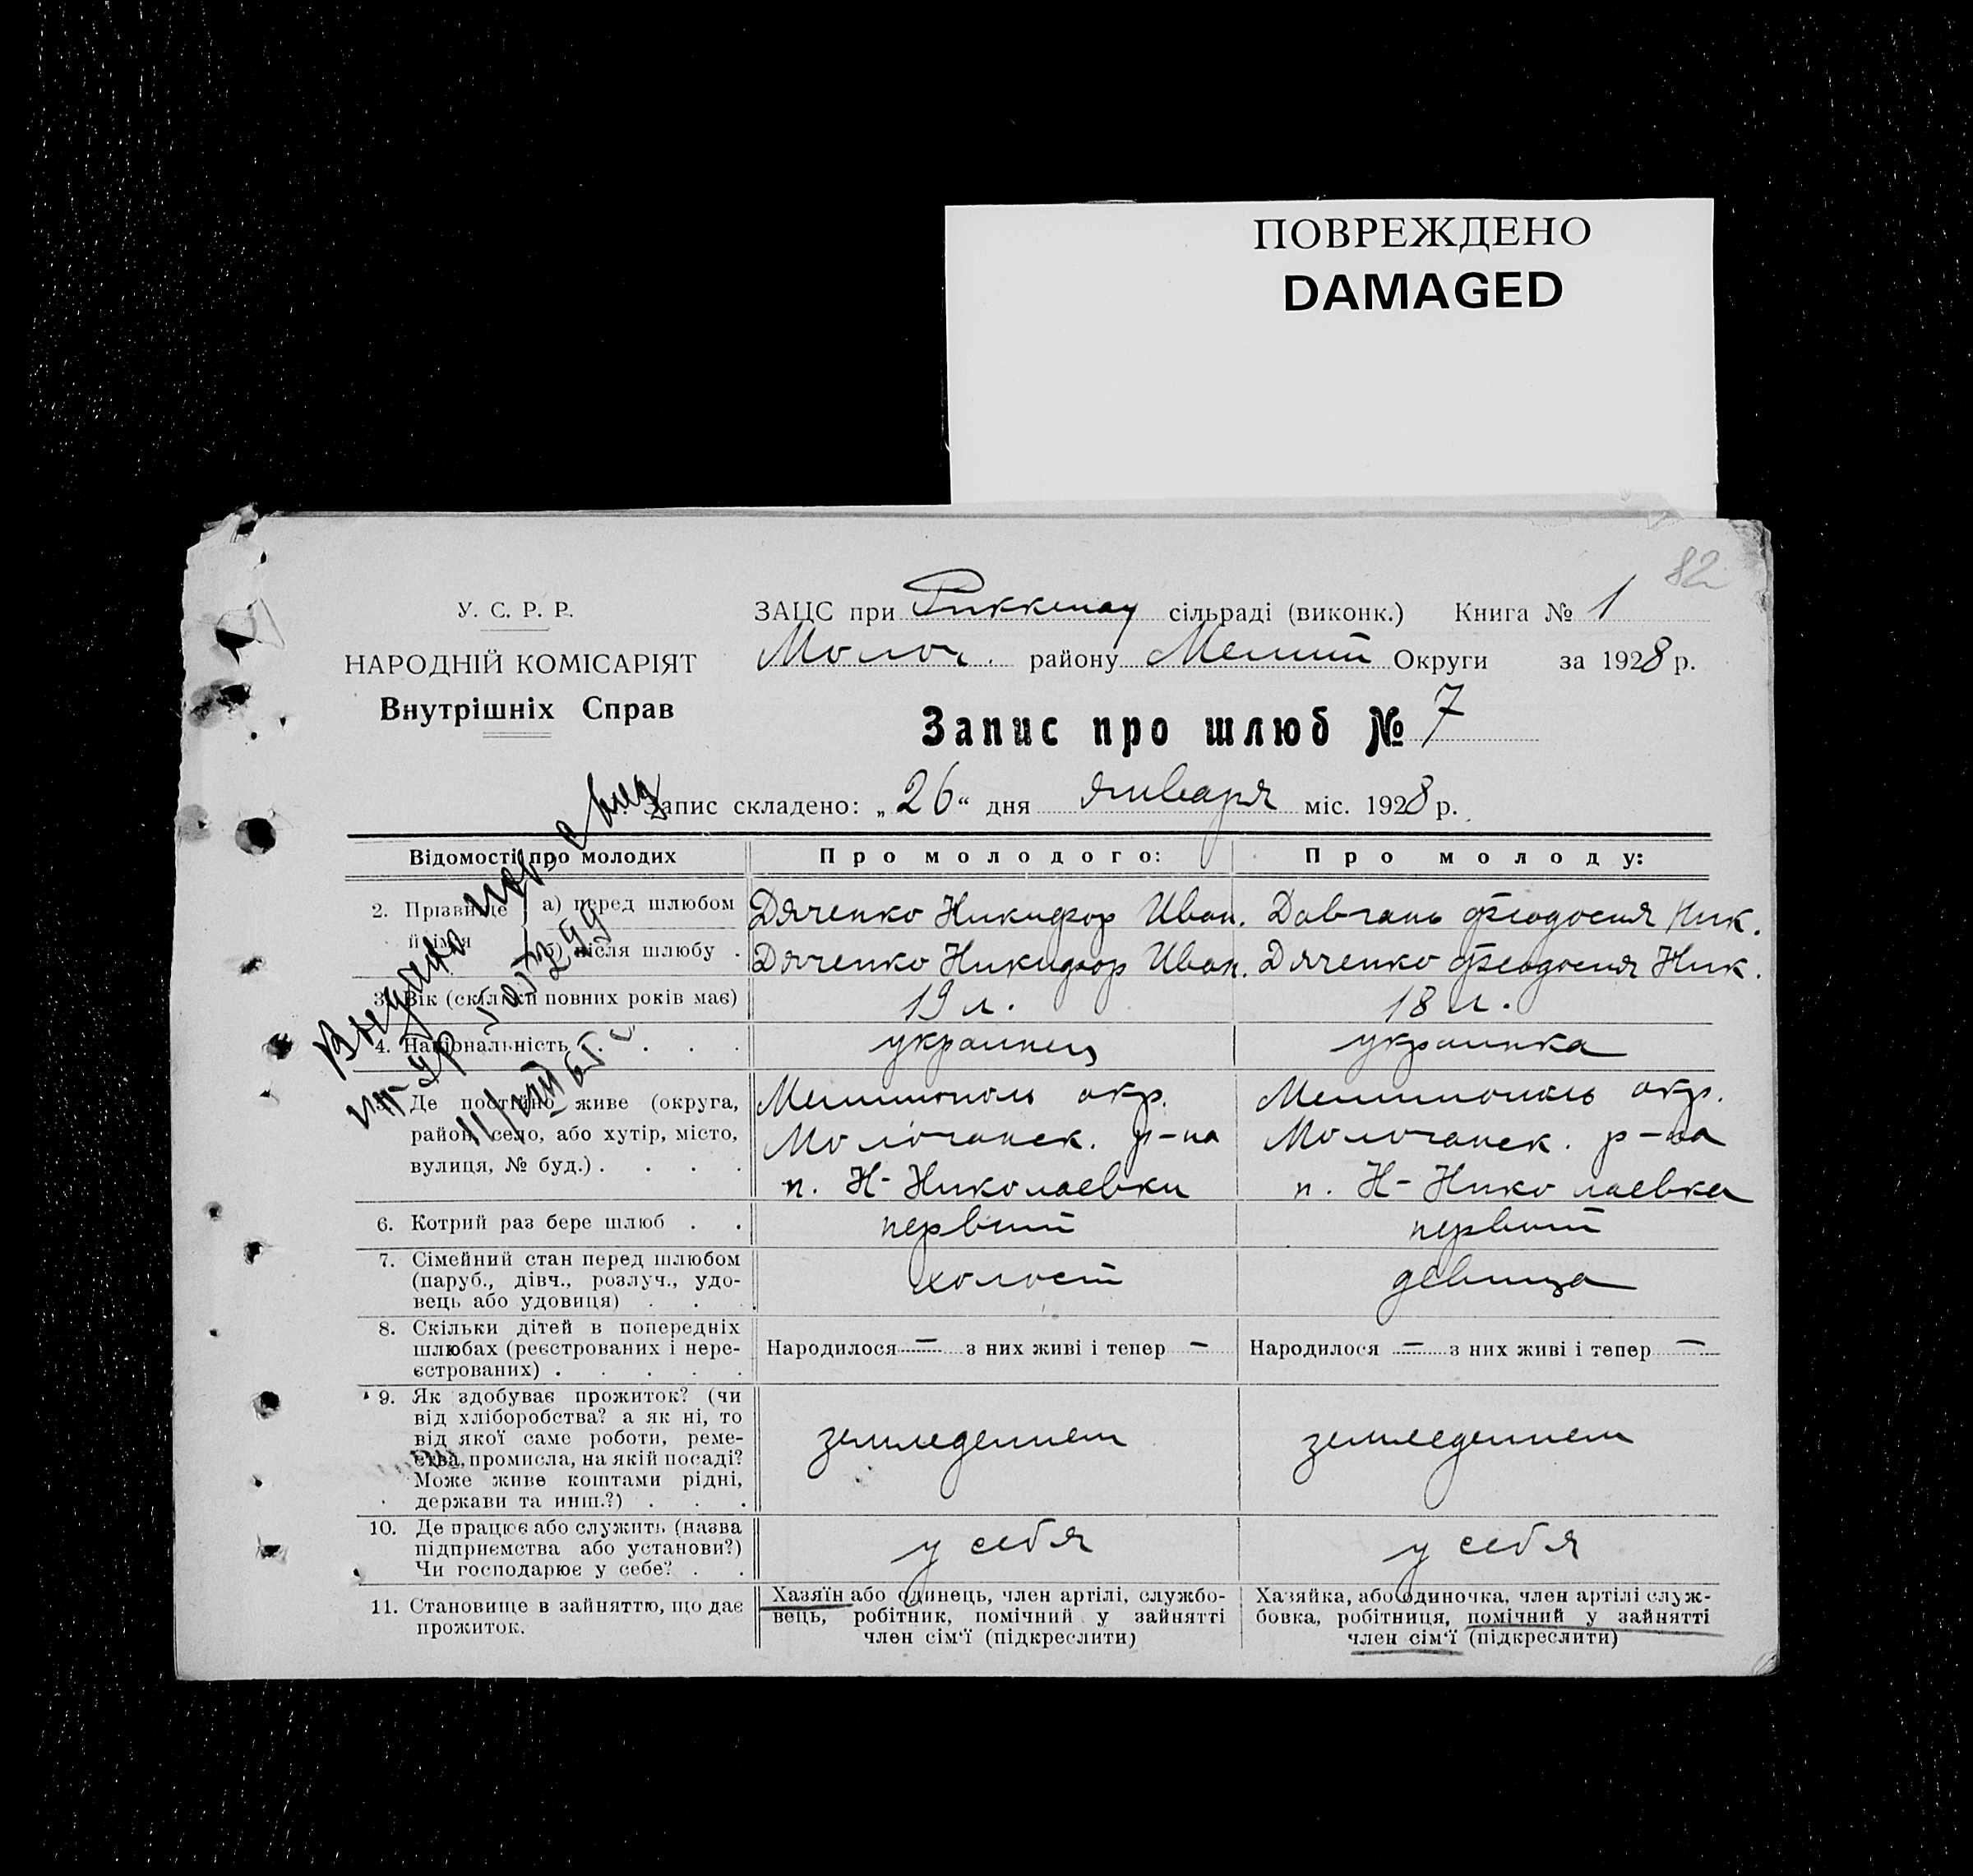 ПОВРЕЖДЕНО
DAMAGED
82
У. С. Р. Р.
НАРОДНІЙ КОМІСАРІЯТ
Внутрішніх Справ
ЗАЦС при Риккенау сільраді (виконк.) Книга № 1
Молоч. району Мелит Округи за 1928 р.
Запис про шлюб № 7
Запис складено: „26“ дня января міс. 1928 р.
Відомості про молодих Про молодого: Про молоду:
2. Прізвище й імя
а) перед шлюбом Дяченко Никифор Иван. Довгань Феодосия Ник.
б) після шлюбу . Дяченко Никифор Иван. Дяченко Феодосия Ник.
3. Вік (скільки повних років має) 19 л. 18 л.
4. Національність . . . . украинец украинка
5. Де постійно живе (округа,
район, село, або хутір, місто,
вулиця, № буд.) . . . .
Мелитополь окр.
Молочанск. р-на
п. Н-Николаевки
Мелитополь окр.
Молочанск. р-на
п. Н-Николаевка
6. Котрий раз бере шлюб . . первый первый
7. Сімейний стан перед шлюбом
(паруб., дівч., розлуч., удо-
вець або удовиця) . . .
холост девица
8. Скільки дітей в попередніх
шлюбах (реєстрованих і нере-
єстрованих) . . . . .
Народилося — з них живі і тепер — Народилося — з них живі і тепер —
9. Як здобуває прожиток? (чи
від хліборобства? а як ні, то
від якої саме роботи, реме-
ства, промисла, на якій посаді?
Може живе коштами рідні,
держави та инш.?) . . .
земледелием земледелием
10. Де працює або служить (назва
підприємства або установи?)
Чи господарює у себе? . .
у себя у себя
11. Становище в зайняттю, що дає
прожиток.
Хазяїн або одинець, член артілі, службо-
вець, робітник, помічний у зайнятті
член сім'ї (підкреслити)
Хазяйка, або одиночка, член артілі служ-
бовка, робітниця, помічний у зайнятті
член сім'ї (підкреслити)